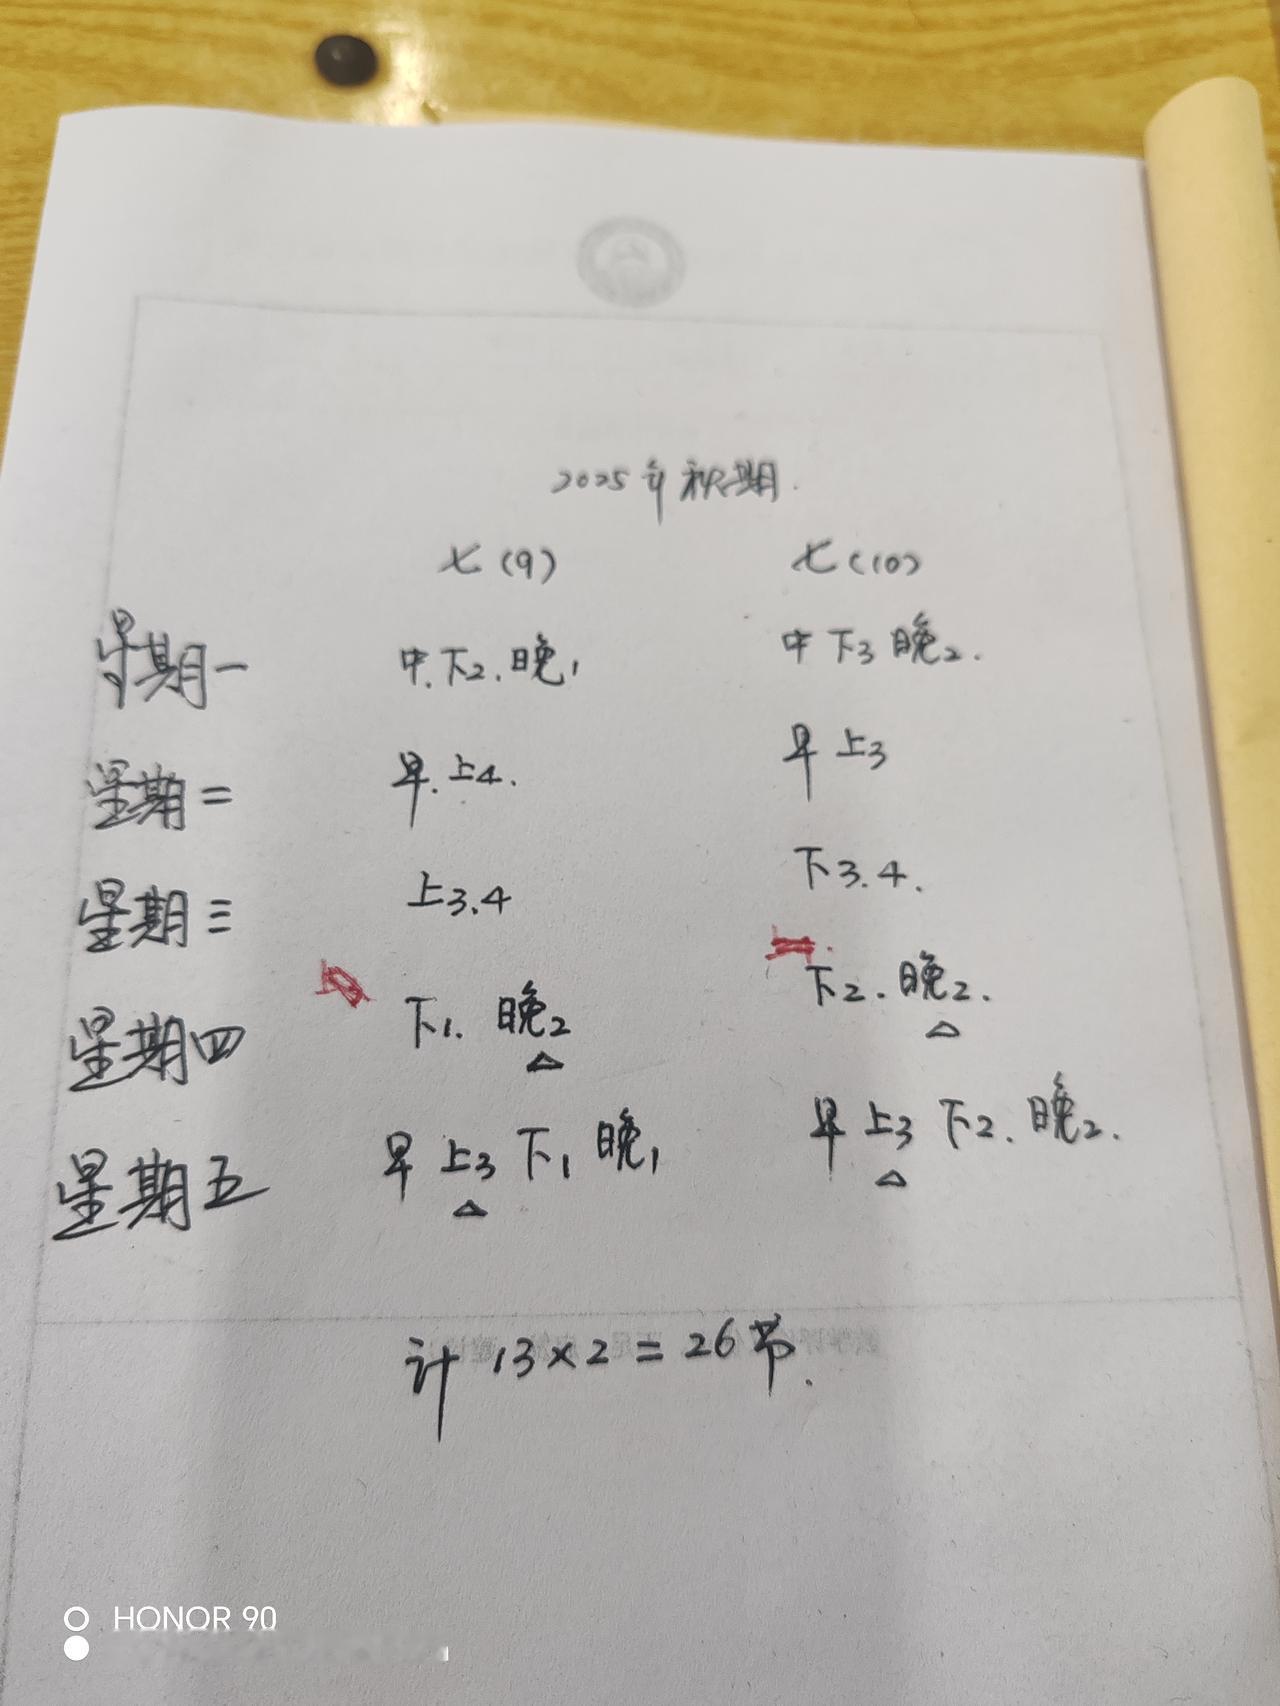 2025年秋期.
七(9) 七(10)
星期一 中.下2.晚1 中 下3 晚2.
星期二 早.上4. 早 上3
星期三 上3.4 下3.4.
星期四 下1. 晚2 下2.晚2.
星期五 早 上3 下1 晚1 早 上3 下2.晚2.
计 13×2=26节.
HONOR 90